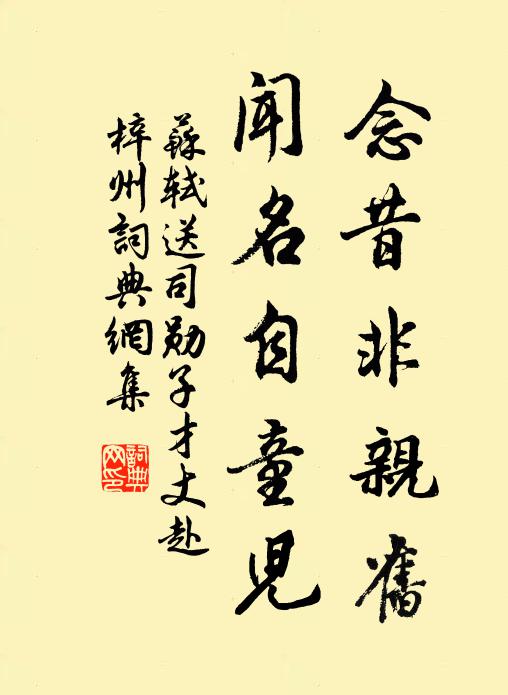 念昔非親舊
聞名自童兒
蘇軾送司勛子才丈赴
梓州詞典網集
詞典網印